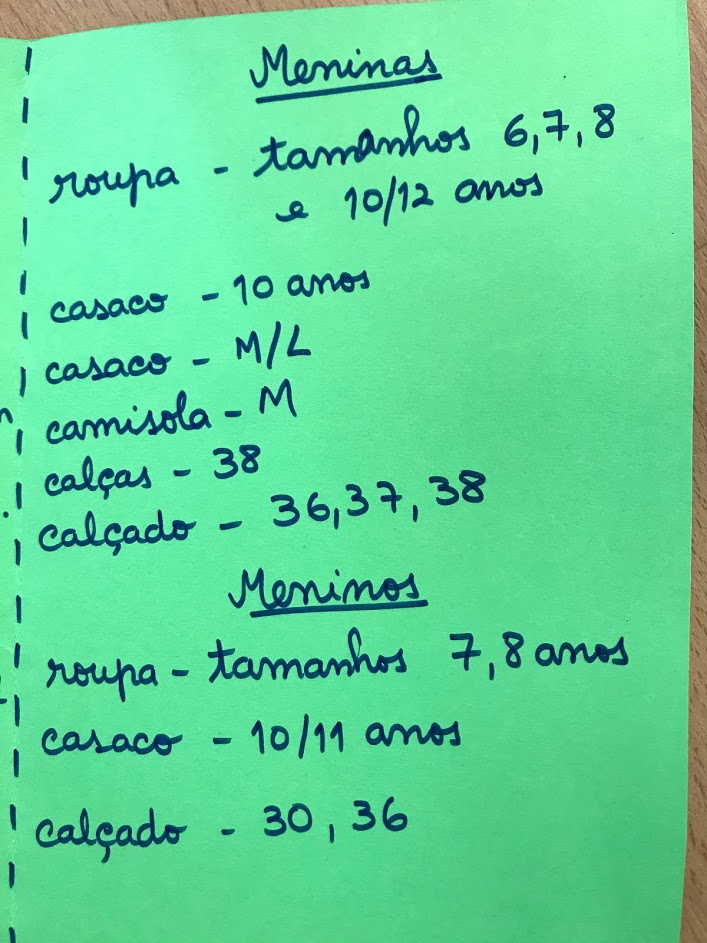 Meninas
roupa - tamanhos 6,7,8
e 10/12 anos
casaco - 10 anos
casaco - M/L
camisola - M
calças - 38
calçado - 36,37,38
Meninos
roupa - tamanhos 7,8 anos
casaco - 10/11 anos
calçado - 30, 36